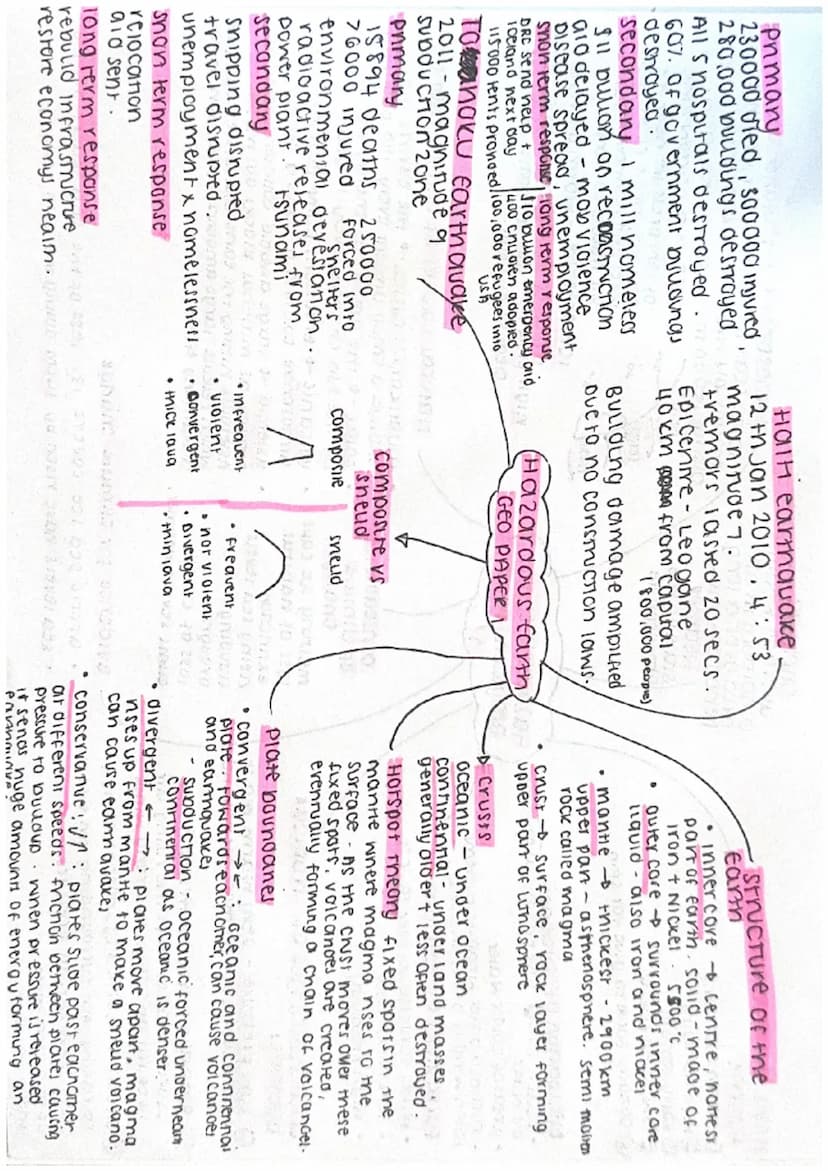 Hazardous Earth
GEO PAPER 1
Haiti earthquake
12th Jan 2010, 4:53
magnitude 7.
tremors lasted 20 secs.
Epicentre - Leogane
40km from capital
(800,000 people)
Building damage amplified
due to no construction laws.
primary
230000 died, 300000 injured,
280,000 buildings destroyed
All 5 hospitals destroyed.
60% of government buildings
destroyed.
secondary 1 mill homeless
$11 billion on reconstruction
aid delayed - mob violence
Disease spread unemployment
short term response
DRC send help +
Iceland next day
115000 tents provided
long term response
$10 billion emergency aid
400 children adopted.
100,000 refugees into
USA
Tohoku Earthquake
2011 - magnitude 9
subduction zone
primary
15894 deaths 250000
76000 injured forced into
shelters
environmental devestation.
radioactive releases from
power plant. tsunami
secondary
shipping disrupted
travel disrupted.
unemployment x homelessness
short term response
relocation
aid sent.
long term response
rebuild infrastructure
restore economys health.
composite vs
sheild
composite
• infrequent
• violent
• convergent
• thick lava
sheild
• frequent
• not violent
• divergent
• thin lava
structure of the
Earth
• inner core → centre, hottest
part of earth. solid - made of
iron + Nickel. 5500°c
• outer core → surrounds inner core
liquid - also iron and nickel
• mantle → thickest - 2900km
upper part - asthenosphere. semi molten
rock called magma
• crust → surface, rock layer forming
upper part of lithosphere
Crusts
oceanic - under ocean
continental - under land masses,
generally older + less often destroyed.
Hotspot theory fixed spots in the
mantle where magma rises to the
surface - As the crust moves over these
fixed spots, volcanoes are created,
eventually forming a chain of volcanoes.
plate boundaries
• convergent → ← : oceanic and continental
plate towards eachother, can cause volcanoes
and earthquakes
- subduction - oceanic forced underneath
continental as oceanic is denser
• divergent ← → : plates move apart, magma
rises up from mantle to make a sheild volcano.
can cause earthquakes
• conservative ↓↑ : plates slide past eachother
at different speeds. friction between plates causing
pressure to buildup. when pressure is released
it sends huge amounts of energy forming an
earthquake